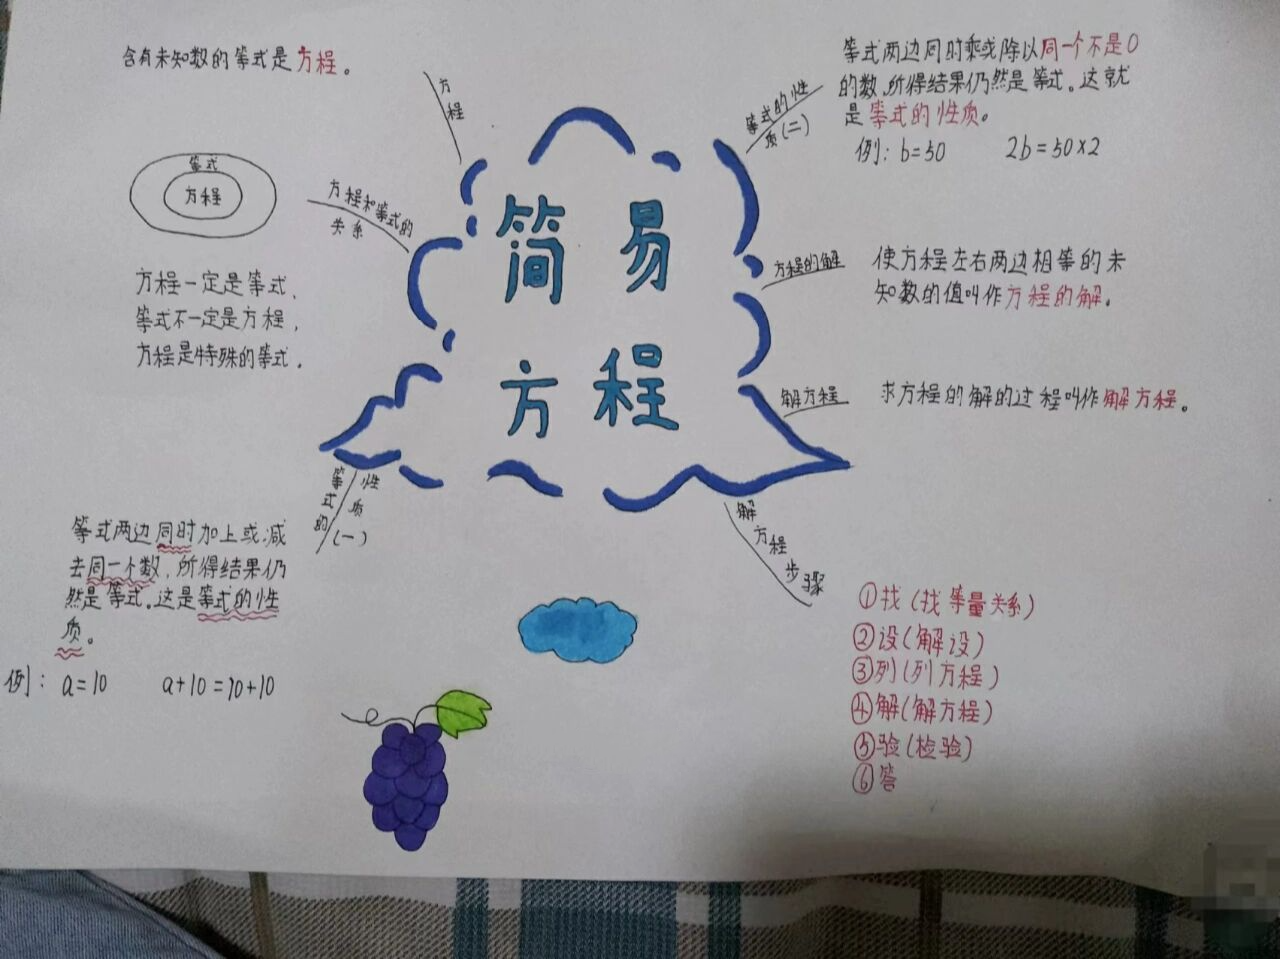 简易
方程
方程
含有未知数的等式是方程。
方程和等式的
关系
等式
方程
方程一定是等式,
等式不一定是方程,
方程是特殊的等式.
等式的
性质(一)
等式两边同时加上或减
去同一个数,所得结果仍
然是等式。这是等式的性
质。
例: a=10 a+10=10+10
等式的性
质(二)
等式两边同时乘或除以同一个不是0
的数,所得结果仍然是等式。这就
是等式的性质。
例: b=50 2b=50×2
方程的解
使方程左右两边相等的未
知数的值叫作方程的解。
解方程
求方程的解的过程叫作解方程。
解方程步骤
①找(找等量关系)
②设(解设)
③列(列方程)
④解(解方程)
⑤验(检验)
⑥答